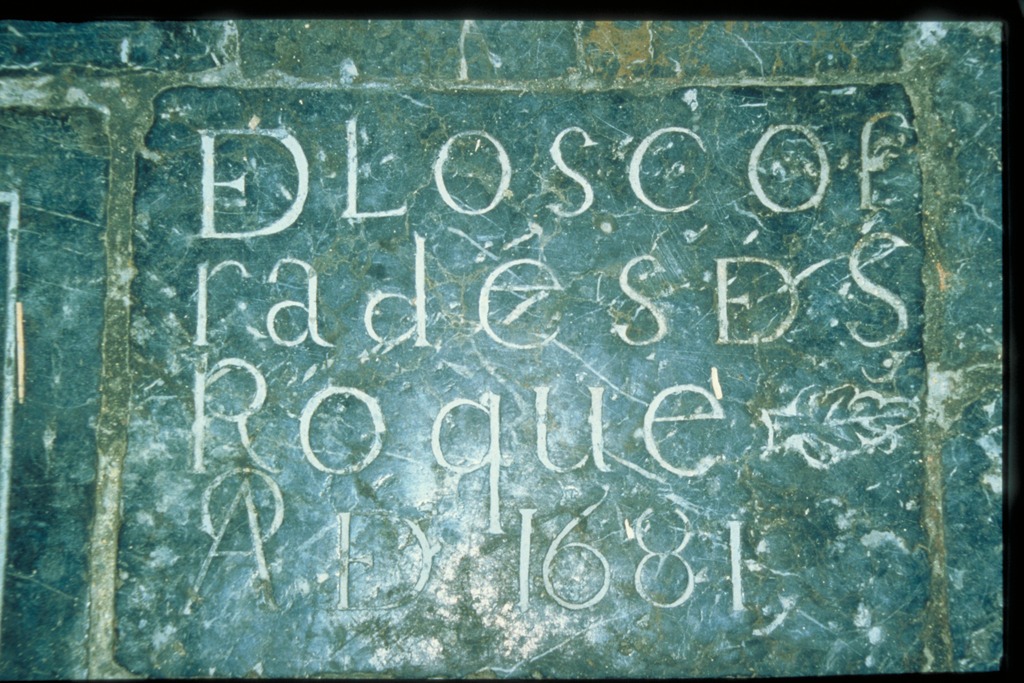 DE LOS COF
radés DE S
Roque
AO DE 1681